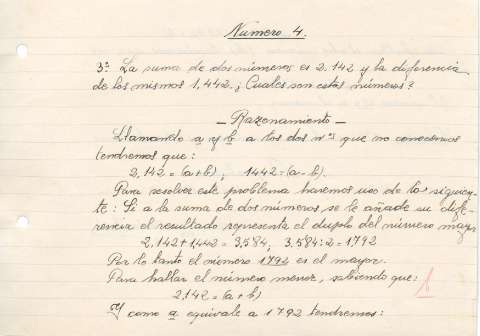 Numero 4.
3ª La suma de dos números es 2,142 y la diferencia
de los mismos 1,442. ¿Cuales son estos números?
- Razonamiento -
Llamando a y b a los dos nºs que no conocemos
tendremos que:
2,142 = (a+b), 1442 = (a-b).
Para resolver este problema haremos uso de lo siguien-
te: Si a la suma de dos números se le añade su dife-
rencia el resultado representa el duplo del número mayor
2,142 + 1,442 = 3,584, 3,584:2 = 1792
Por lo tanto el número 1792 es el mayor.
Para hallar el número menor, sabiendo que:
2,142 = (a+b)
Y como a equivale a 1792 tendremos: